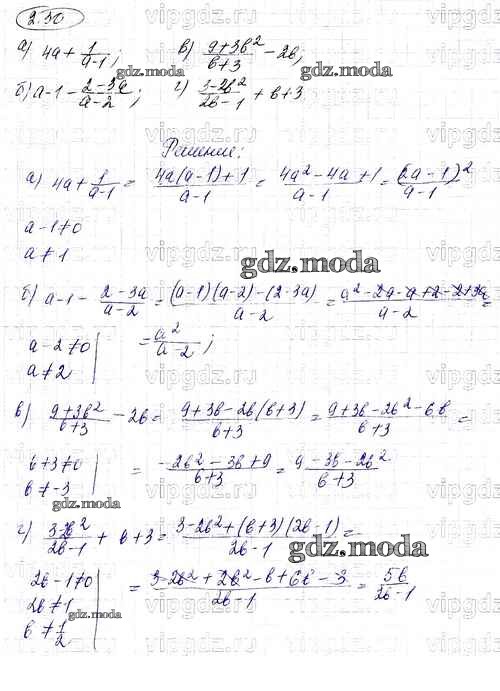 2.30
а) 4a + 1/(a-1); в) (9+3b²)/(b+3) - 2b;
б) a-1 - (2-3a)/(a-2); г) (3-2b²)/(2b-1) + b+3
gdz.moda
Решение:
а) 4a + 1/(a-1) = (4a(a-1)+1)/(a-1) = (4a²-4a+1)/(a-1) = (2a-1)²/(a-1)
a-1≠0
a≠1
gdz.moda
б) a-1 - (2-3a)/(a-2) = ((a-1)(a-2)-(2-3a))/(a-2) = (a²-2a-a+2-2+3a)/(a-2) =
a-2≠0 = a²/(a-2);
a≠2
в) (9+3b²)/(b+3) - 2b = (9+3b-2b(b+3))/(b+3) = (9+3b-2b²-6b)/(b+3) =
b+3≠0 = (-2b²-3b+9)/(b+3) = (9-3b-2b²)/(b+3)
b≠-3
gdz.moda
г) (3-2b²)/(2b-1) + b+3 = (3-2b²+(b+3)(2b-1))/(2b-1) =
gdz.moda
2b-1≠0 = (3-2b²+2b²-b+6b-3)/(2b-1) = 5b/(2b-1)
2b≠1
b≠1/2
gdz.moda
vipgdz.ru